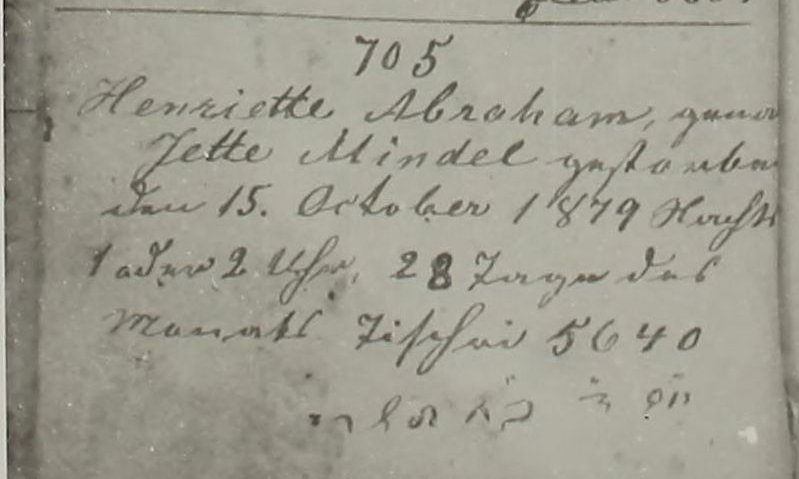 705
Henriette Abraham, genan
Jette Mindel gestorben
den 15. October 1879 Nachts
1 oder 2 Uhr, 28 Tage des
Monats Tischri 5640